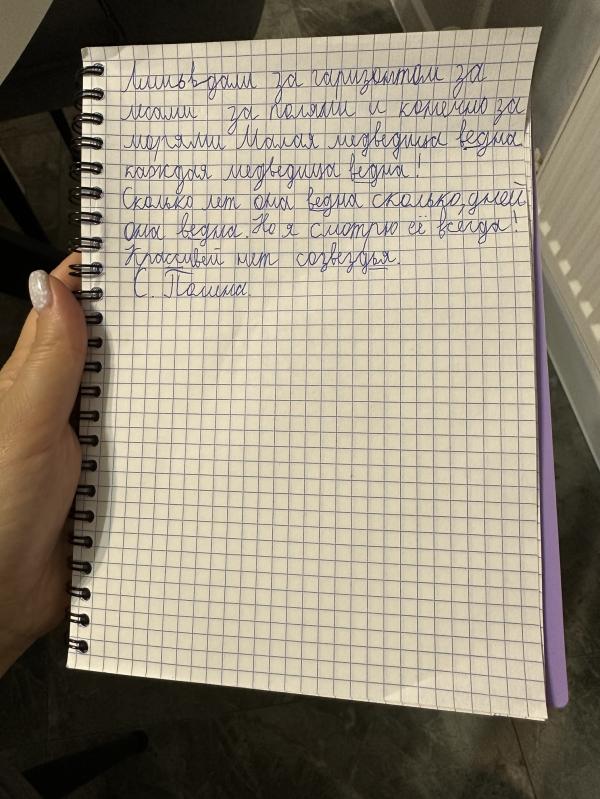 Лишь вдали за гаризонтом за
лесами за полями и конечно за
морями Малая медведица ведна
каждая медведица ведна!
Сколько лет она ведна сколько дней
она ведна. Но я смотрю её всегда!
Красивей нет созвездья.
С. Полина.